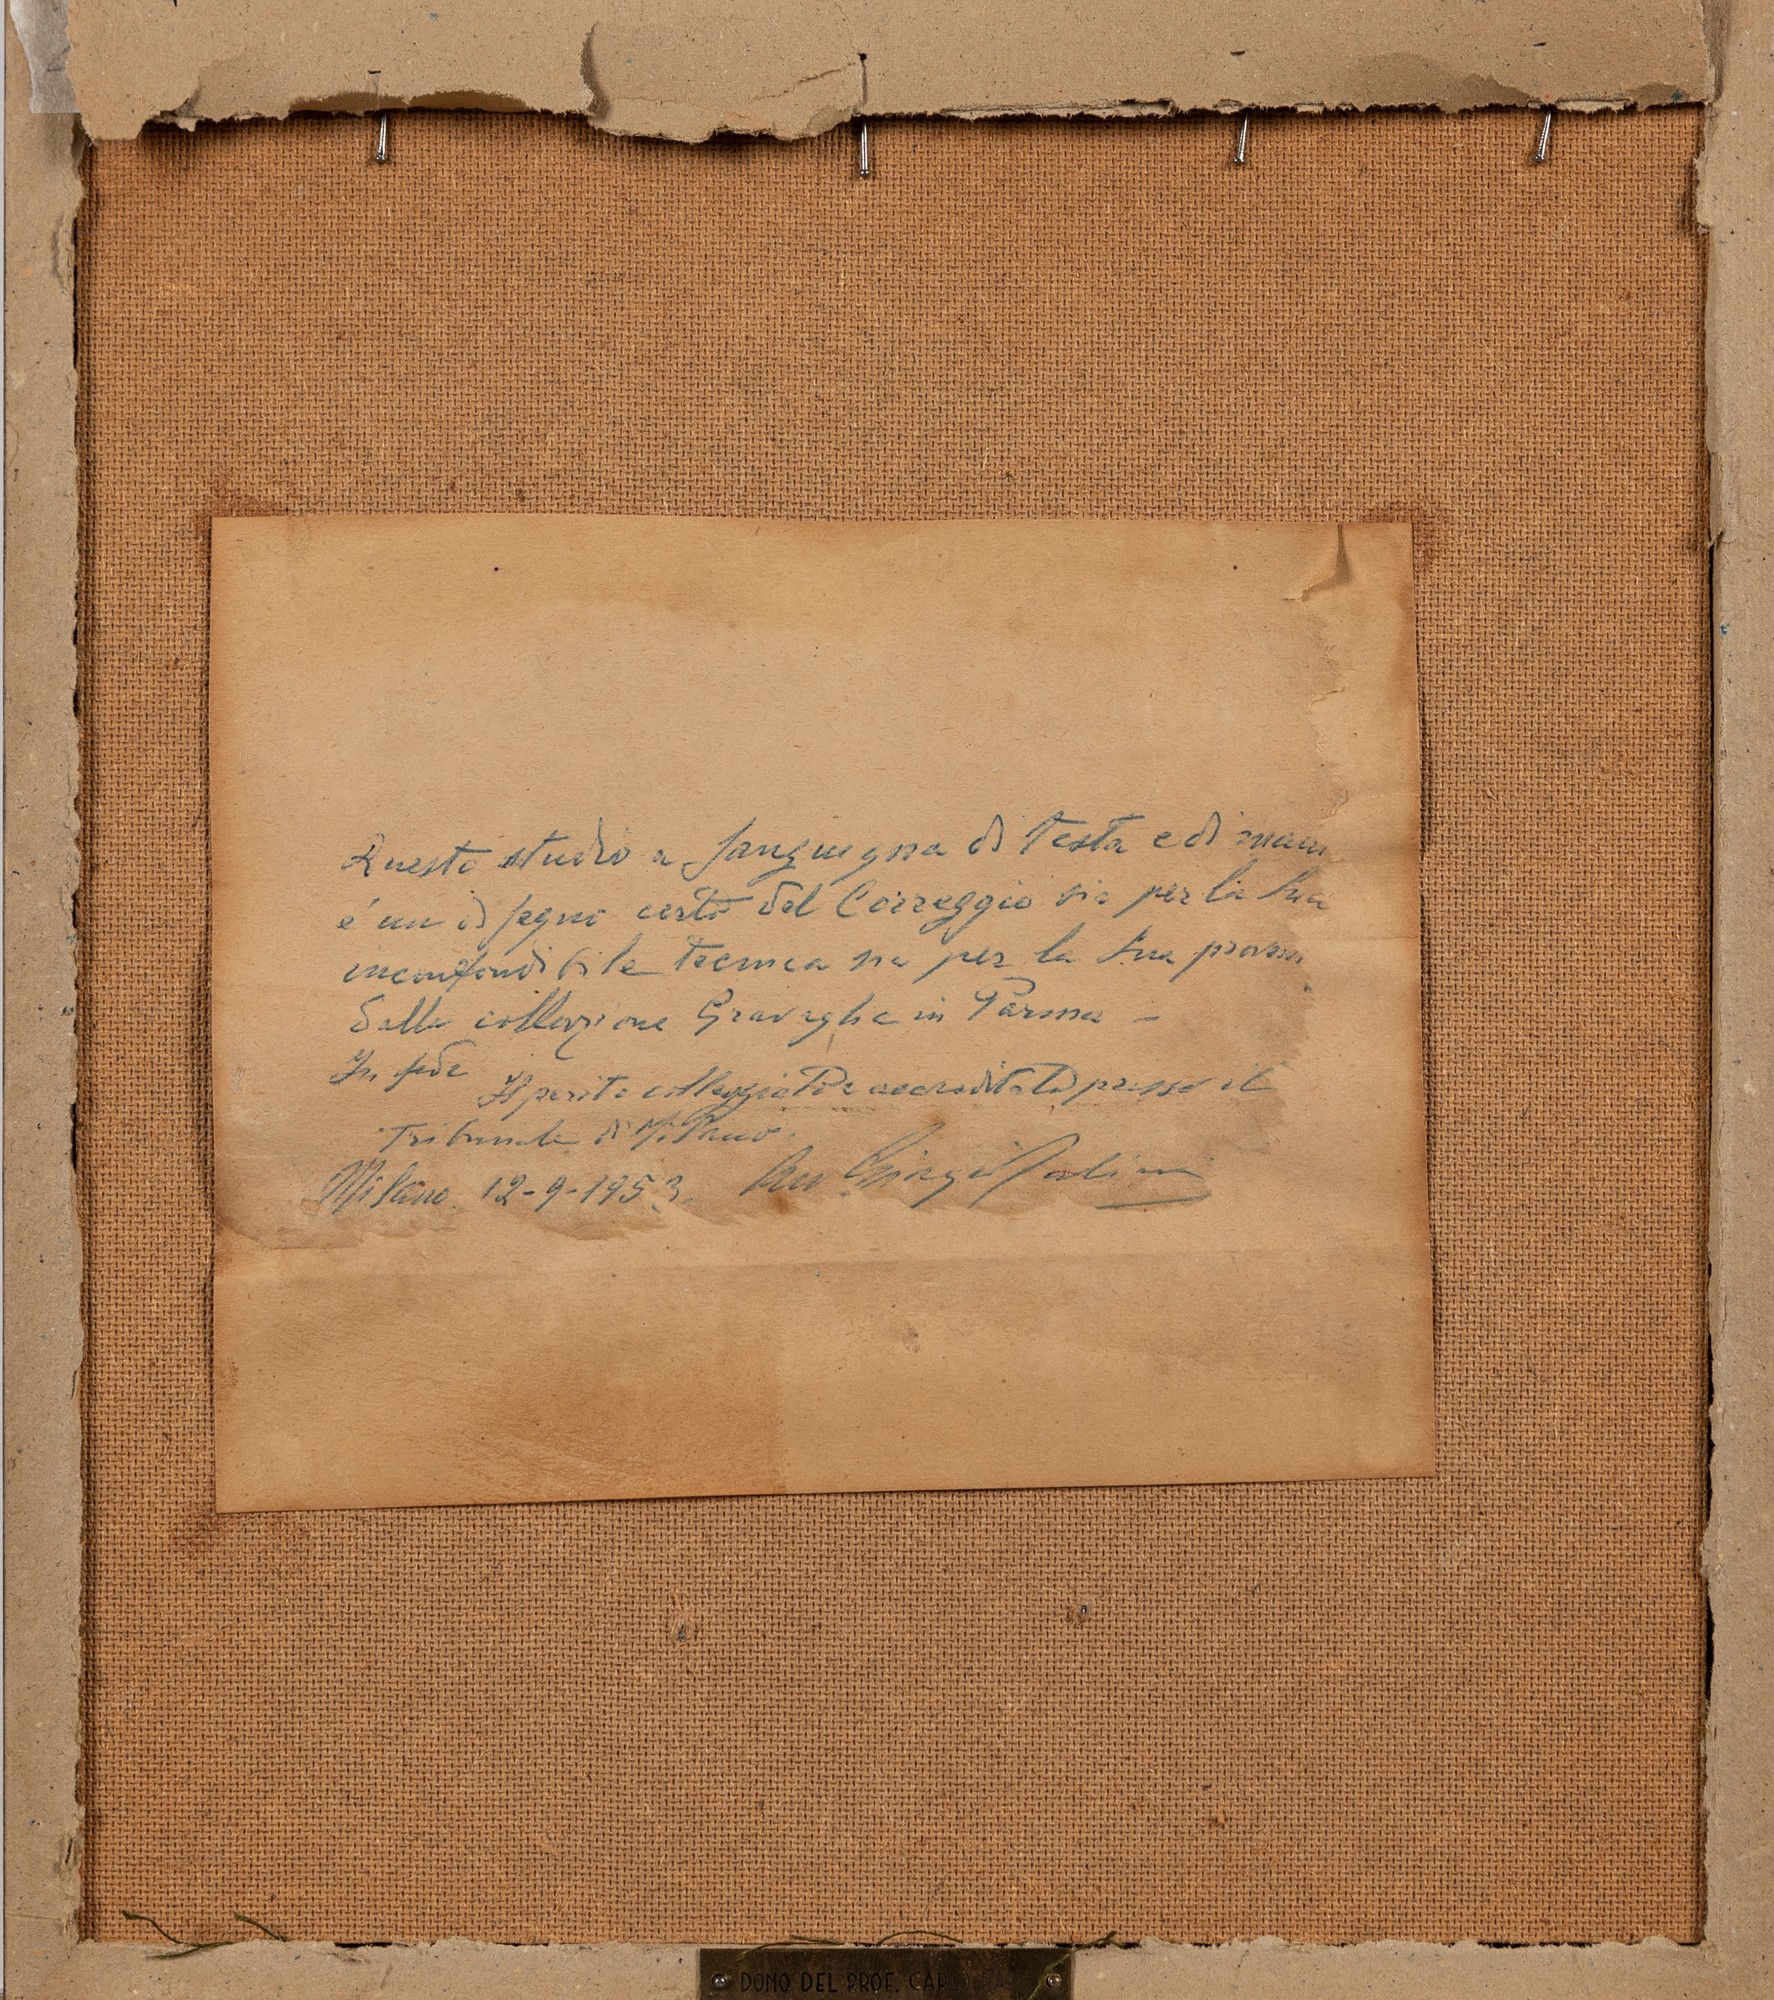 Questo studio a sanguigna di testa e di mani
é un disegno certo del Correggio sia per la sua
inconfondibile tecnica sia per la sua proven
dalla collezione Gravaglia in Parma -
In fede
Il perito colleggiato e accreditato presso il
Tribunale di Milano.
Milano. 12-9-1953.
DONO DEL PROF.